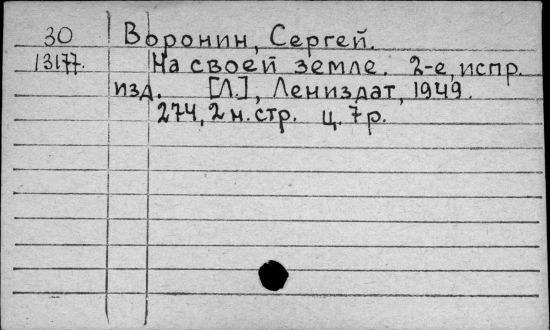 30 Воронин, Сергей.
13177. На своей земле. 2-е, испр.
изд. [Л.], Лениздат, 1949.
274, 2 н. стр. ц. 7 р.